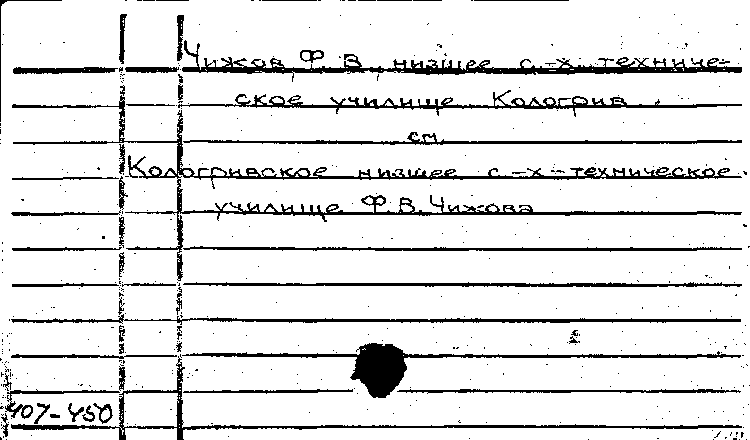 Чижов, Ф. В., низшее с.-х. техниче-
ское училище. Кологрив.
см.
Кологривское низшее с.-х.-техническое
училище Ф.В. Чижова
407-450